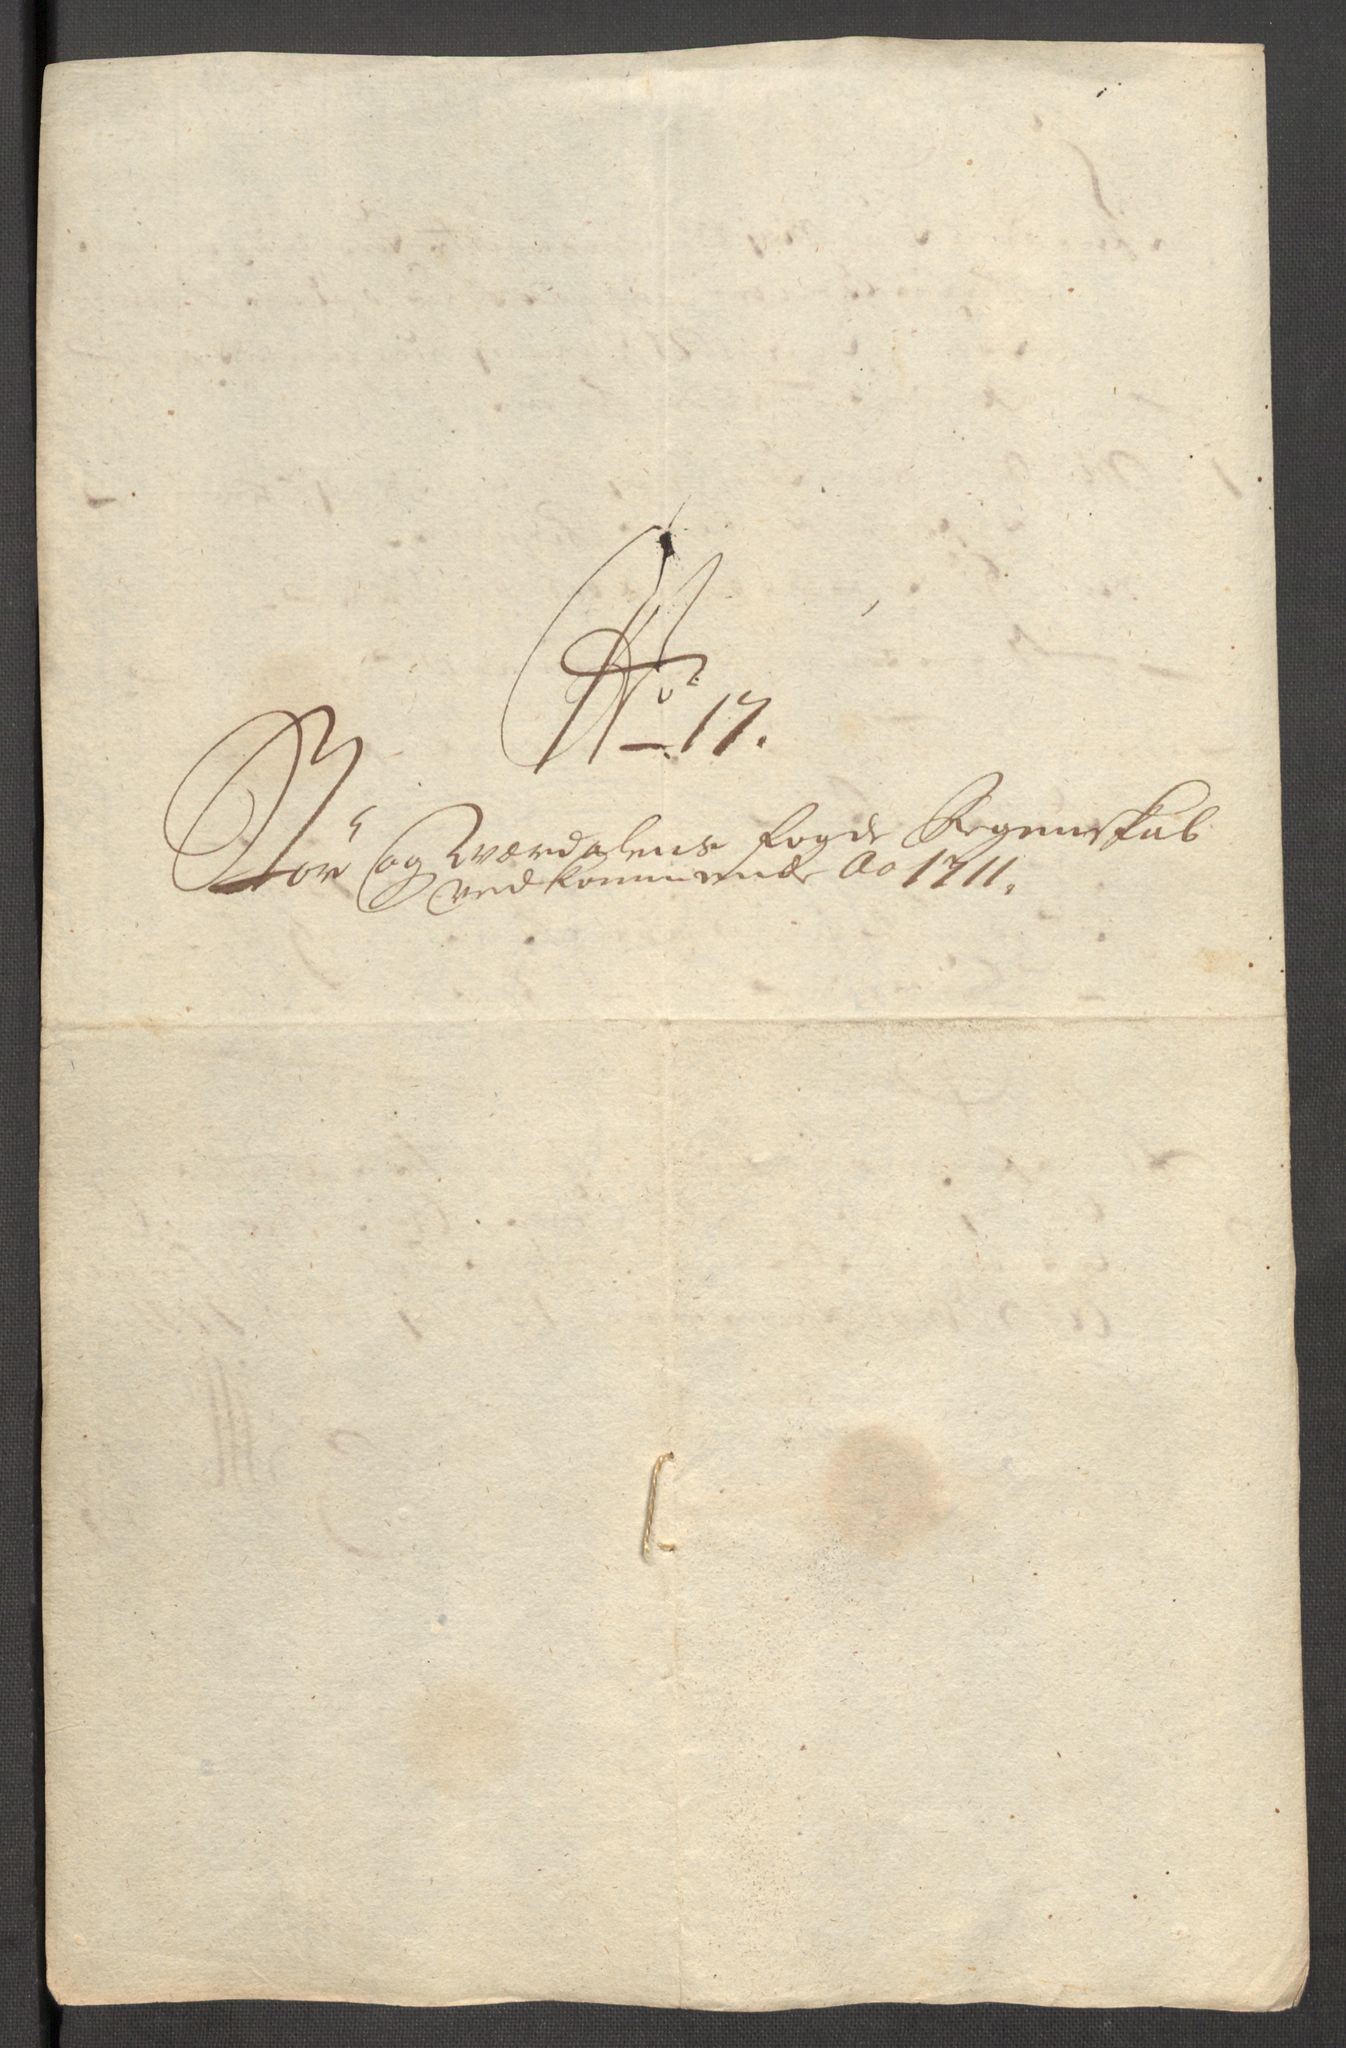 No 17.
Stør og Wærdalens fogde Regenskab
vedkommende Ao 1711.